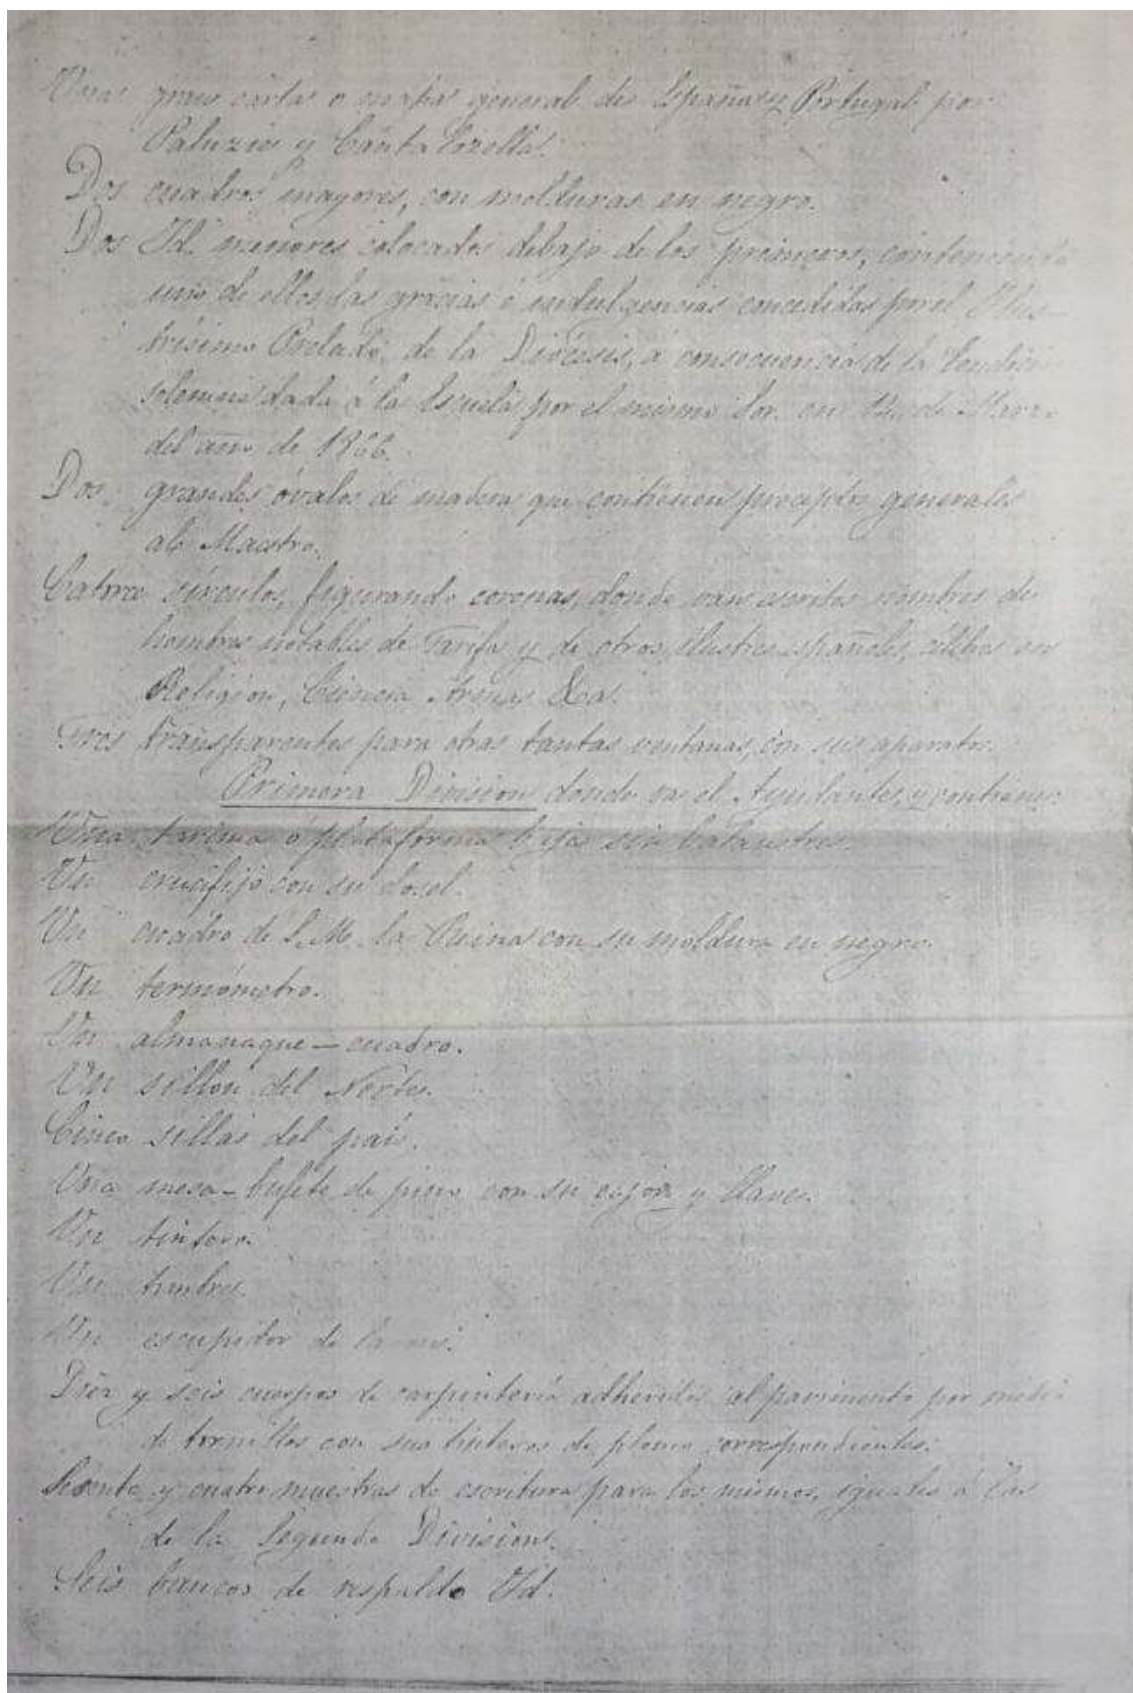 Una gran carta o mapa general de España y Portugal por
Paluzie y Cantalozella.
Dos cuadros mayores, con molduras en negro.
Dos Id. menores colocados debajo de los primeros, conteniendo
uno de ellos las gracias é indulgencias concedidas por el Ilus-
trísimo Prelado de la Diócesis, á consecuencia de la bendición
solemne dada á la Escuela por el mismo Sor. en de Marzo
del año de 1866.
Dos grandes óvalos de madera que contienen preceptos generales
al Maestro.
Catorce círculos, figurando coronas, donde van escritos nombres de
hombres notables de Tarifa y de otros ilustres españoles, célebres en
Religion, Ciencia Armas &a.
Tres transparentes para otras tantas ventanas, con sus aparatos.
Primera Division donde va el Ayudante, y contiene:
Una tarima ó plataforma baja sin balaustres.
Un crucifijo con su dosel.
Un cuadro de S. M. la Reina con su moldura en negro.
Un termómetro.
Un almanaque - cuadro.
Un sillon del Norte.
Cinco sillas del país.
Una mesa - bufete de pino con su cajon y llave.
Un tintero.
Un timbre.
Un escupidor de
Diez y seis cuerpos de carpintería adheridos al pavimento por medio
de tornillos con sus tinteros de plomo correspondientes.
Sesenta y cuatro muestras de escritura para los mismos, iguales á las
de la Segunda Division.
Seis bancos de respaldo Id.